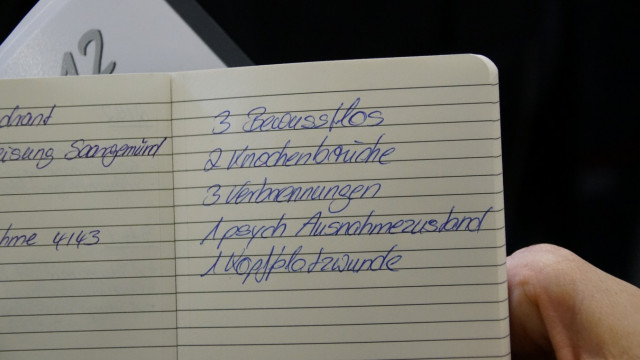 12
drant
eisung Saargemünd
hme 4143
3 Bewusstlos
2 Knochenbrüche
3 Verbrennungen
1 psych Ausnahmezustand
1 Kopfplatzwunde